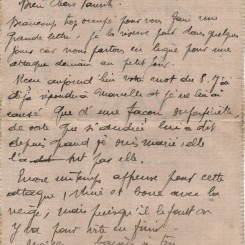 Bien chers Parents
Beaucoup trop occupé pour vous faire une
grande lettre, je la réserve pour dans quelques
jours car nous partons en ligne pour une
attaque demain au petit jour.
Reçu aujourd'hui votre mot du 8. J'ai
déjà répondu à Marcelle et je ne lui ai
causé que d'une façon superficielle
de sorte que si André lui a dit
depuis quand je suis marié, elle
l'a su par elle.
Encore un temps affreux pour cette
attaque, pluie et boue avec la
neige, mais puisqu'il le faut on
y va pour vite en finir